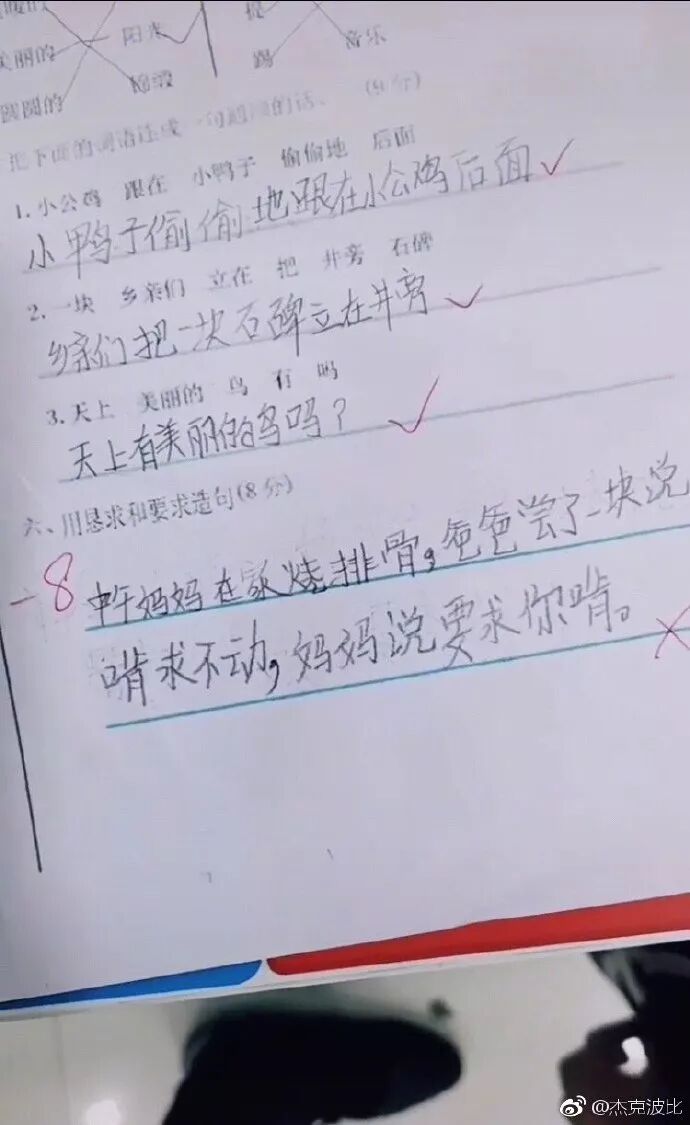 美丽的 阳光
提
踢 音乐
圆圆的
把下面的词语连成一句通顺的话。 (9分)
1.小公鸡 跟在 小鸭子 偷偷地 后面
小鸭子偷偷地跟在小公鸡后面
2.一块 乡亲们 立在 把 井旁 石碑
乡亲们把一块石碑立在井旁
3.天上 美丽的 鸟 有 吗
天上有美丽的鸟吗?
六、用恳求和要求造句(8分)
-8
中午妈妈在家烧排骨,爸爸尝了一块说
啃求不动,妈妈说要求你啃。
@杰克波比